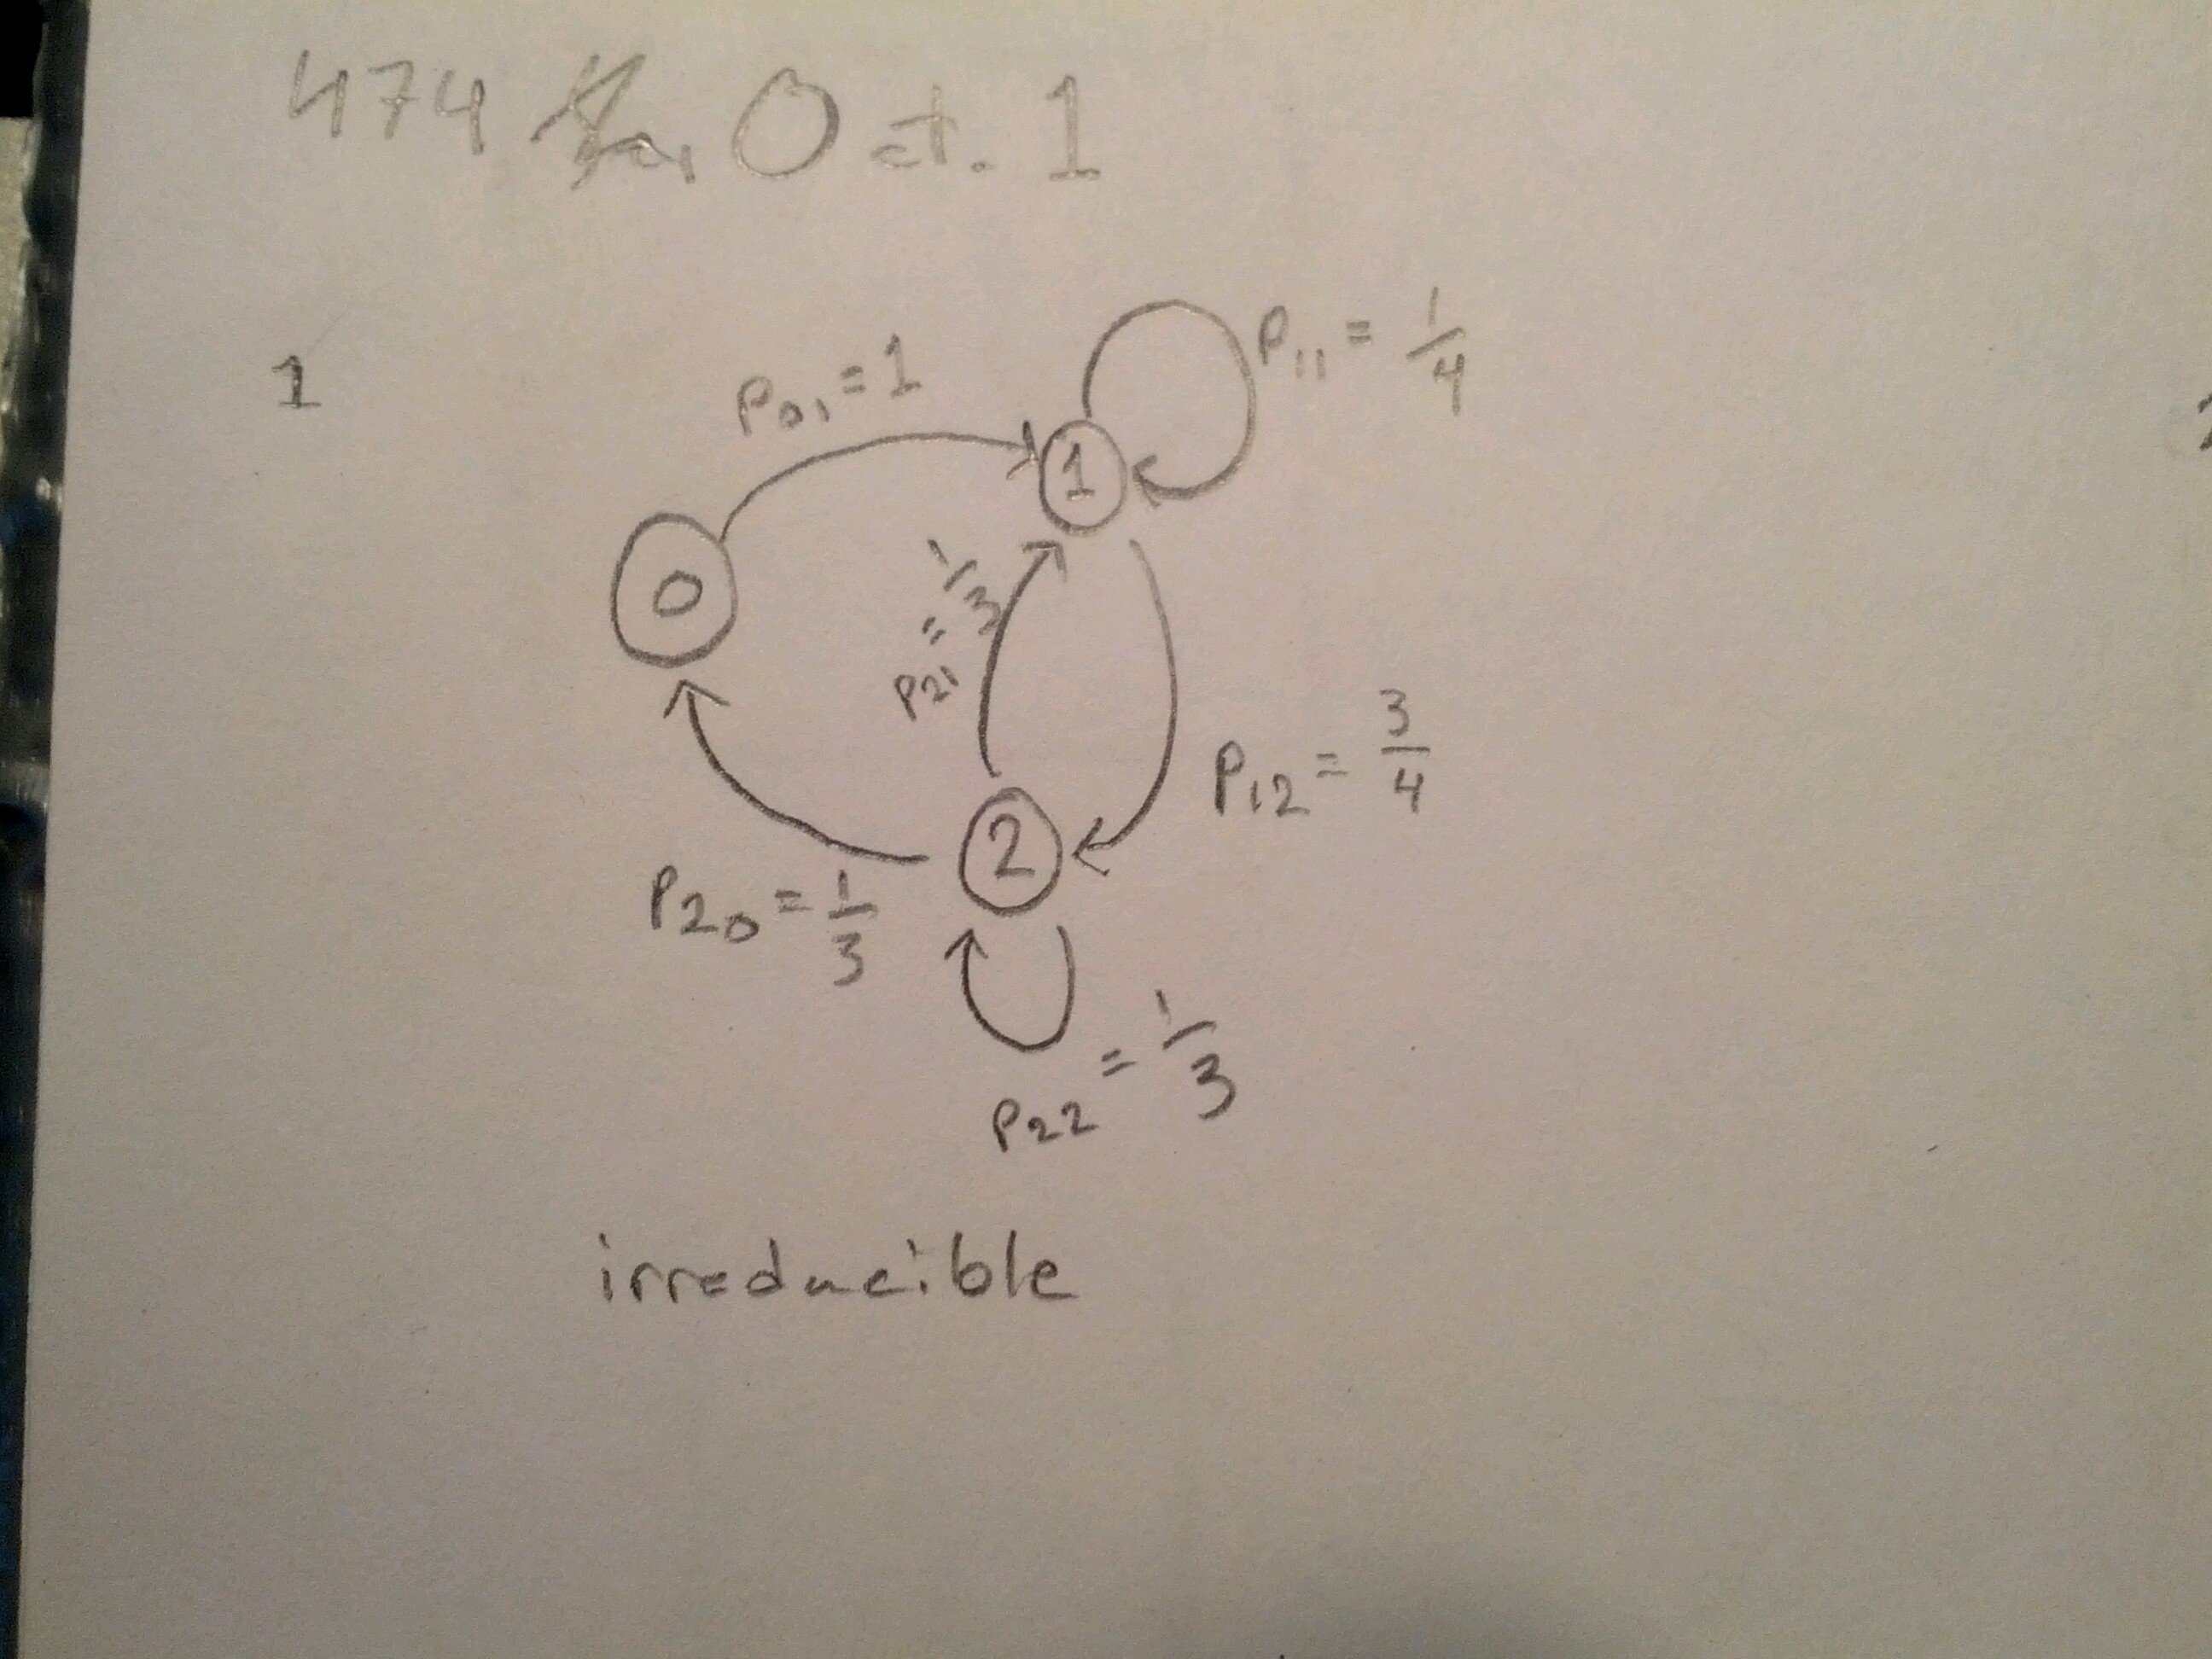 474 Oct. 1
1
p₀₁ = 1
p₁₁ = 1/4
0
1
p₂₁ = 1/3
p₁₂ = 3/4
2
p₂₀ = 1/3
p₂₂ = 1/3
irreducible